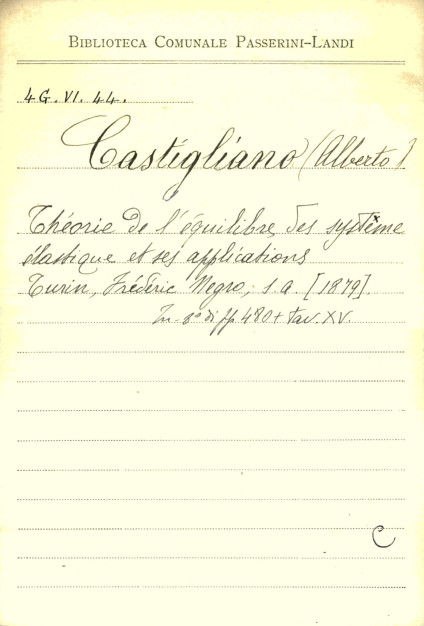 BIBLIOTECA COMUNALE PASSERINI-LANDI
4G. VI. 44.
Castigliano (Alberto)
Théorie de l'équilibre des système
élastique et ses applications
Turin, Frédéric Negro, s. a. [1879].
In-8° di pp 480 + tav. XV.
C